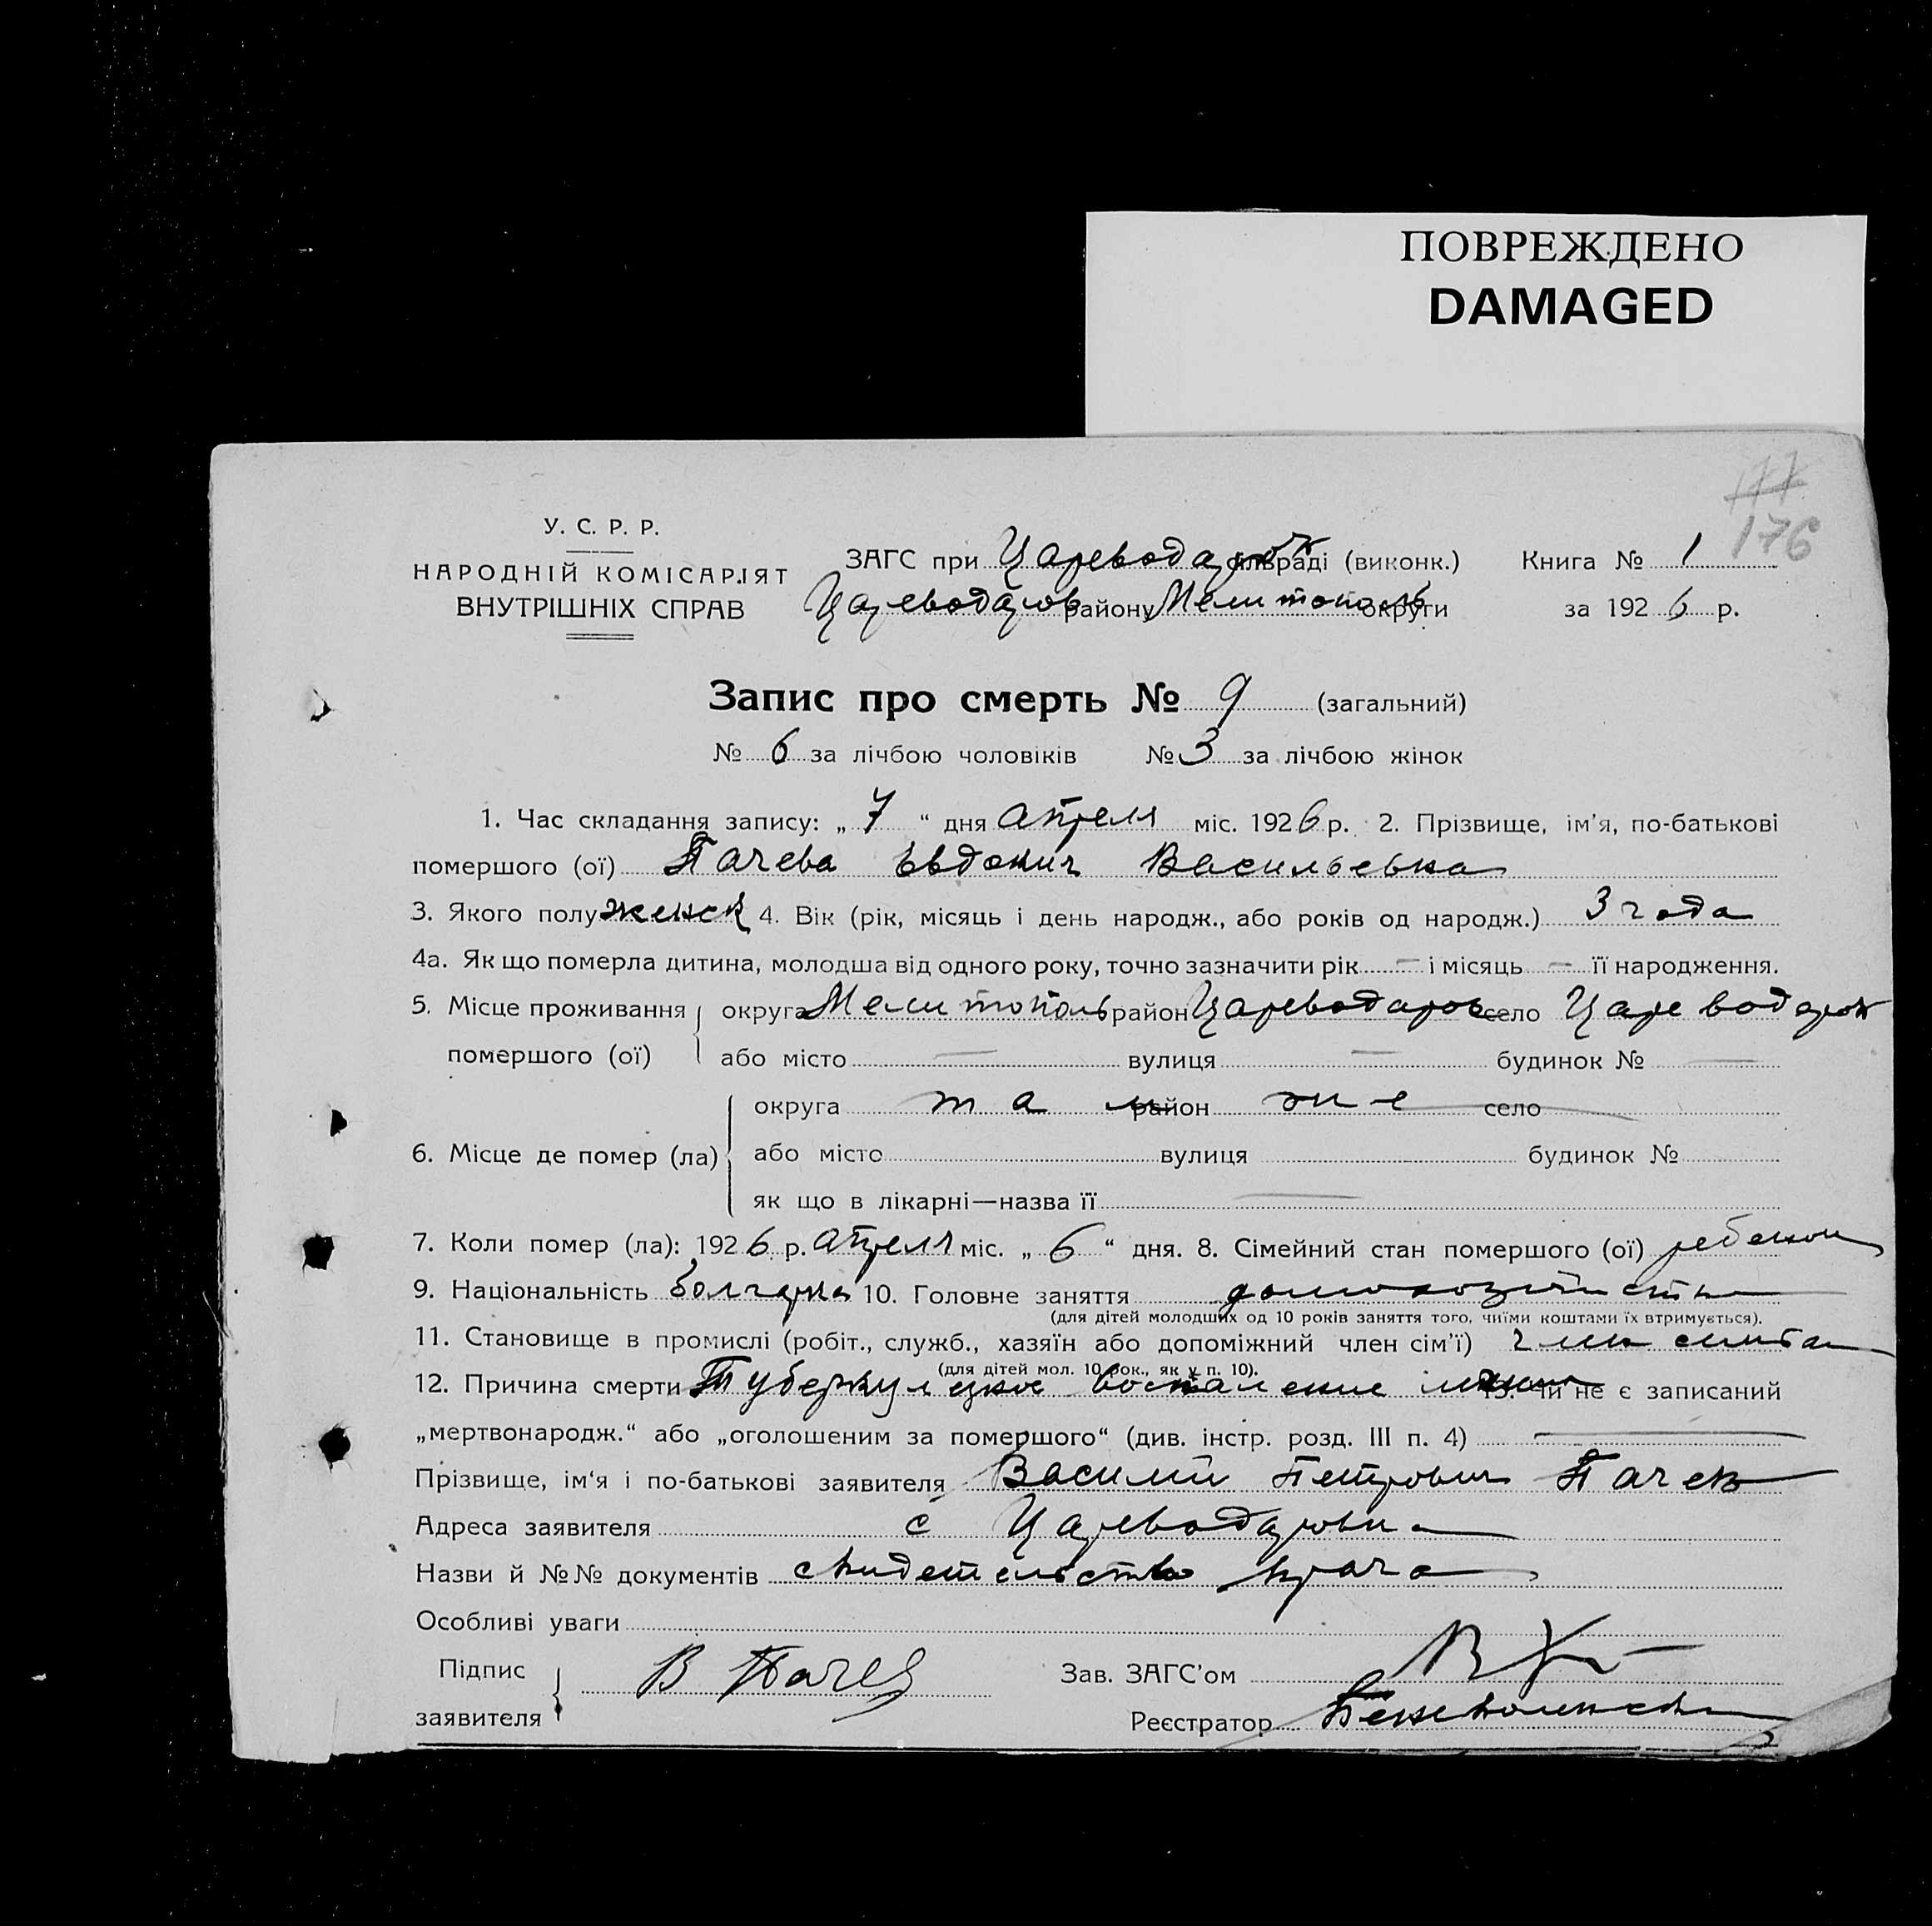 ПОВРЕЖДЕНО
DAMAGED
177
176
У. С. Р. Р.
НАРОДНІЙ КОМІСАРІЯТ
ВНУТРІШНІХ СПРАВ
ЗАГС при Цареводаровск сільраді (виконк.) Книга № 1
Цареводаров району Мелитополь округи за 1926 р.
Запис про смерть № 9 (загальний)
№ 6 за лічбою чоловіків № 3 за лічбою жінок
1. Час складання запису: „7“ дня апреля міс. 1926 р. 2. Прізвище, ім’я, по-батькові
помершого (ої) Пачева Евдокия Васильевна
3. Якого полу женск 4. Вік (рік, місяць і день народж., або років од народж.) 3 года
4а. Як що померла дитина, молодша від одного року, точно зазначити рік — і місяць — її народження.
5. Місце проживання помершого (ої) округа Мелитополь район Цареводаров село Цареводаров
або місто — вулиця — будинок № —
6. Місце де помер (ла) округа там район же село
або місто вулиця будинок №
як що в лікарні—назва її —
7. Коли помер (ла): 1926 р. апреля міс. „6“ дня. 8. Сімейний стан помершого (ої) ребенок
9. Національність болгарка 10. Головне заняття
(для дітей молодших од 10 років заняття того, чиїми коштами їх втримується).
11. Становище в промислі (робіт., служб., хазяїн або допоміжний член сім’ї) член семьи
(для дітей мол. 10 рок., як у п. 10).
12. Причина смерти Туберкулезное воспаление 13. Чи не є записаний
„мертвонародж.“ або „оголошеним за помершого“ (див. інстр. розд. III п. 4) —
Прізвище, ім‘я і по-батькові заявителя Василий Петрович Пачев
Адреса заявителя с Цареводаровка
Назви й №№ документів свидетельство врача
Особливі уваги
Підпис заявителя В Пачев Зав. ЗАГС’ом
Реєстратор